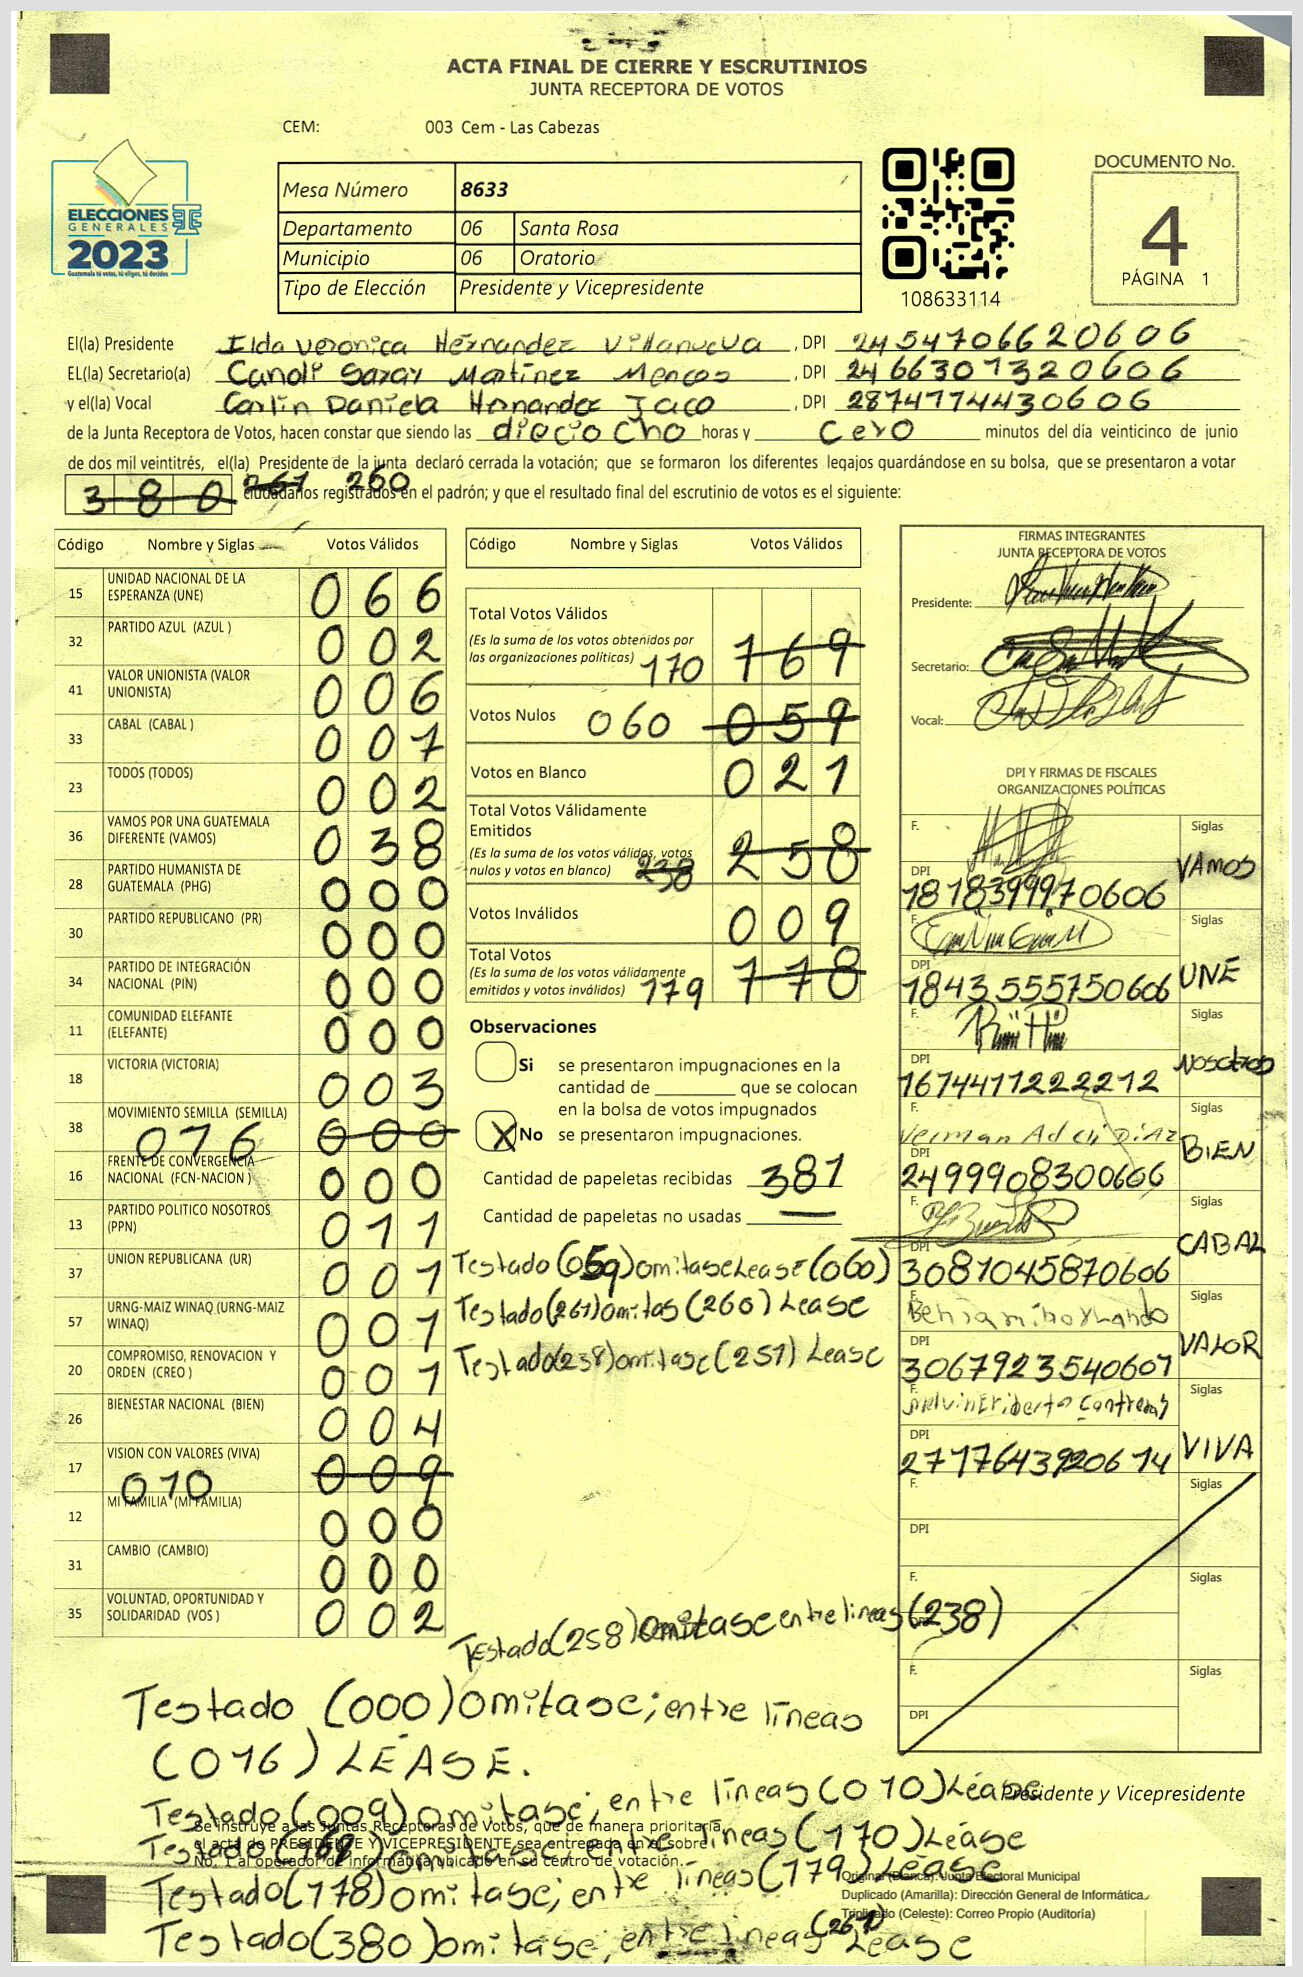 ACTA FINAL DE CIERRE Y ESCRUTINIOS
JUNTA RECEPTORA DE VOTOS
CEM: 003 Cem - Las Cabezas
ELECCIONES
GENERALES
2023
Guatemala tú votas, tú eliges, tú decides
Mesa Número 8633
Departamento 06 Santa Rosa
Municipio 06 Oratorio
Tipo de Elección Presidente y Vicepresidente
108633114
DOCUMENTO No.
4
PÁGINA 1
El(la) Presidente Ilda veronica Hérnandez Villanueva , DPI 2454706620606
EL(la) Secretario(a) Candi Saray Martínez Mencos , DPI 2466301320606
y el(la) Vocal Carlin Daniela Hernandez Jaco , DPI 2874774430606
de la Junta Receptora de Votos, hacen constar que siendo las dieciocho horas y cero minutos del día veinticinco de junio
de dos mil veintitrés, el(la) Presidente de la junta declaró cerrada la votación; que se formaron los diferentes legajos guardándose en su bolsa, que se presentaron a votar
380 261 260 ciudadanos registrados en el padrón; y que el resultado final del escrutinio de votos es el siguiente:
Código Nombre y Siglas Votos Válidos
15 UNIDAD NACIONAL DE LA ESPERANZA (UNE) 066
32 PARTIDO AZUL (AZUL ) 002
41 VALOR UNIONISTA (VALOR UNIONISTA) 006
33 CABAL (CABAL ) 007
23 TODOS (TODOS) 002
36 VAMOS POR UNA GUATEMALA DIFERENTE (VAMOS) 038
28 PARTIDO HUMANISTA DE GUATEMALA (PHG) 000
30 PARTIDO REPUBLICANO (PR) 000
34 PARTIDO DE INTEGRACIÓN NACIONAL (PIN) 000
11 COMUNIDAD ELEFANTE (ELEFANTE) 000
18 VICTORIA (VICTORIA) 003
38 MOVIMIENTO SEMILLA (SEMILLA) 016 000
16 FRENTE DE CONVERGENCIA NACIONAL (FCN-NACION ) 000
13 PARTIDO POLITICO NOSOTROS (PPN) 011
37 UNION REPUBLICANA (UR) 001
57 URNG-MAIZ WINAQ (URNG-MAIZ WINAQ) 001
20 COMPROMISO, RENOVACION Y ORDEN (CREO ) 001
26 BIENESTAR NACIONAL (BIEN) 004
17 VISION CON VALORES (VIVA) 010 009
12 MI FAMILIA (MI FAMILIA) 000
31 CAMBIO (CAMBIO) 000
35 VOLUNTAD, OPORTUNIDAD Y SOLIDARIDAD (VOS ) 002
Código Nombre y Siglas Votos Válidos
Total Votos Válidos
(Es la suma de los votos obtenidos por
las organizaciones políticas) 170 169
Votos Nulos 060 059
Votos en Blanco 021
Total Votos Válidamente
Emitidos
(Es la suma de los votos válidos, votos
nulos y votos en blanco) 238 258
Votos Inválidos 009
Total Votos
(Es la suma de los votos válidamente
emitidos y votos inválidos) 179 178
Observaciones
Si se presentaron impugnaciones en la
cantidad de ________ que se colocan
en la bolsa de votos impugnados
X No se presentaron impugnaciones.
Cantidad de papeletas recibidas 381
Cantidad de papeletas no usadas —
Testado (059) omitase Lease (060)
Testado (261) omitas (260) Lease
Testado (238) omitase (251) Lease
FIRMAS INTEGRANTES
JUNTA RECEPTORA DE VOTOS
Presidente:
Secretario:
Vocal:
DPI Y FIRMAS DE FISCALES
ORGANIZACIONES POLÍTICAS
F. Siglas
DPI 1818399970606 VAMOS
F. Siglas
DPI 1843555750606 UNE
F. Siglas
DPI 1674411222212 NOSOTROS
F. Siglas
DPI 2499908300606 BIEN
F. Siglas
DPI 3081045870606 CABAL
F. Siglas
DPI 3067923540607 VALOR
F. Melvin Eriberto Contreras Siglas
DPI 2717643920614 VIVA
F. Siglas
DPI
F. Siglas
F. Siglas
DPI
Testado (258) Omitase entre lineas (238)
Testado (000) omitase; entre líneas
(016) LÉASE.
Testado (009) omitase; entre líneas (010) Léase
Presidente y Vicepresidente
Se instruye a las Juntas Receptoras de Votos, que de manera prioritaria,
el acta de PRESIDENTE Y VICEPRESIDENTE sea entregada en el sobre
No. 1 al operador de informática ubicado en su centro de votación.
Testado (169) omitase; entre líneas (170) Léase
Testado (178) omitase; entre líneas (179) Léase
Testado (380) omitase, entre lineas (261) Lease
Original (Blanca): Junta Electoral Municipal
Duplicado (Amarilla): Dirección General de Informática
Triplicado (Celeste): Correo Propio (Auditoría)